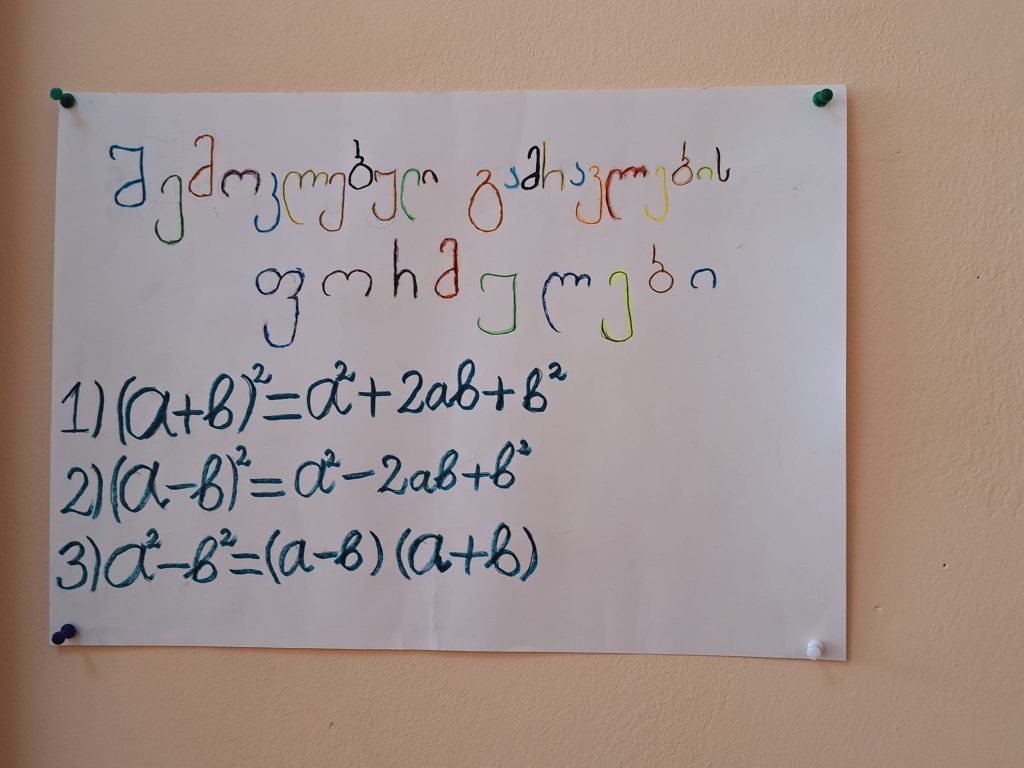 შემოკლებული გამრავლების
ფორმულები
1) (a+b)² = a² + 2ab + b²
2) (a-b)² = a² - 2ab + b²
3) a² - b² = (a-b) (a+b)